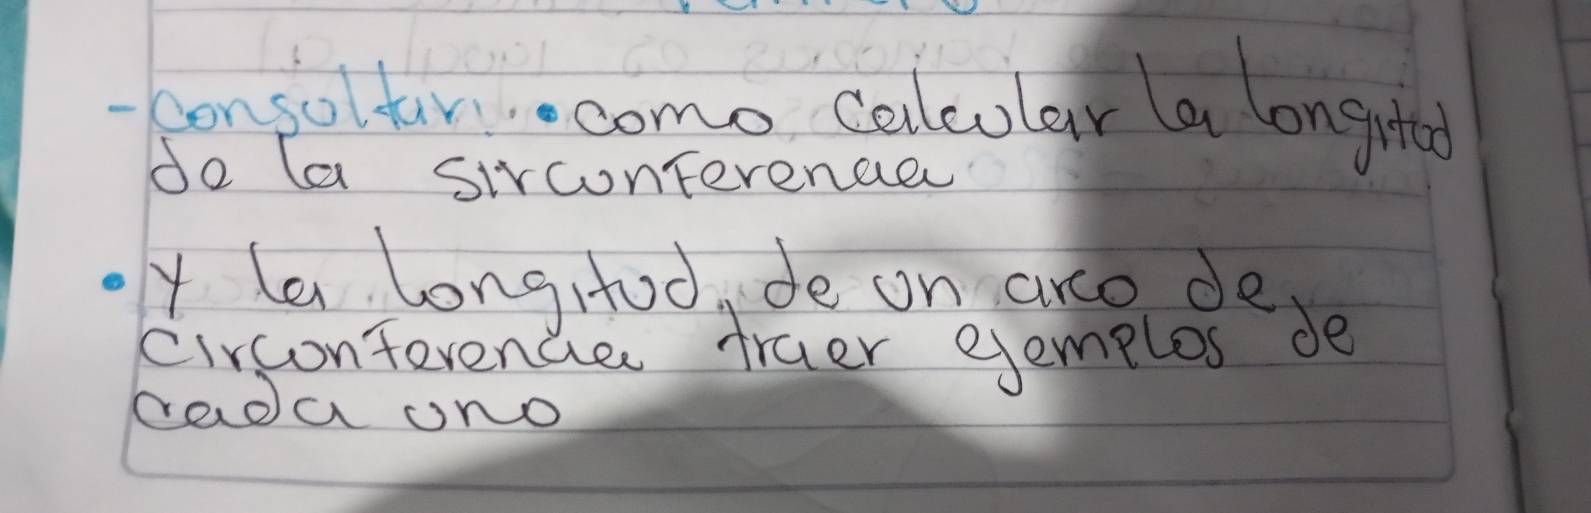 - consultar: • como calcular la longitud
de la sirconferencia
• y la longitud, de un arco de
circonferencia traer ejemplos de
cada uno